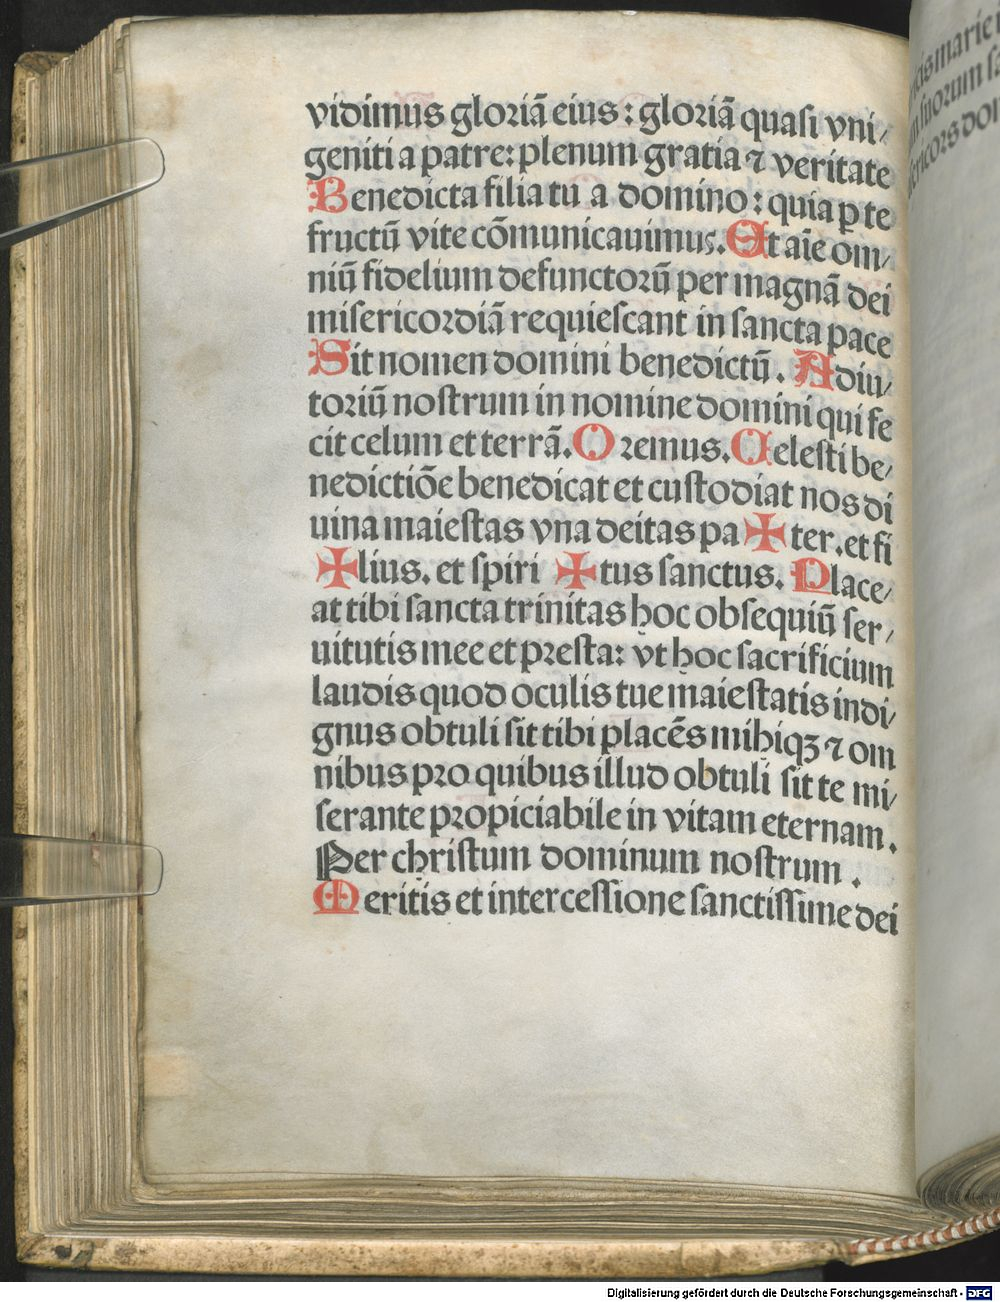 vidimus gloriā eius : gloriā quasi vni/
geniti a patre: plenum gratia ⁊ veritate
Benedicta filia tu a domino : quia ꝑ te
fructū vite cōmunicauimus. Et aīe om/
niū fidelium defunctorū per magnā dei
misericordiā requiescant in sancta pace
Sit nomen domini benedictū. Adiu/
toriū nostrum in nomine domini qui fe
cit celum et terrā. Oremus. Celesti be/
nedictiōe benedicat et custodiat nos di
uina maiestas vna deitas pa ✠ ter. et fi
✠ lius. et spiri ✠ tus sanctus. Place/
at tibi sancta trinitas hoc obsequiū ser/
uitutis mee et presta: vt hoc sacrificium
laudis quod oculis tue maiestatis indi/
gnus obtuli sit tibi placēs mihiqꝫ ⁊ om
nibus pro quibus illud obtuli sit te mi/
serante propiciabile in vitam eternam.
Per christum dominum nostrum.
Meritis et intercessione sanctissime dei
Digitalisierung gefördert durch die Deutsche Forschungsgemeinschaft - DFG